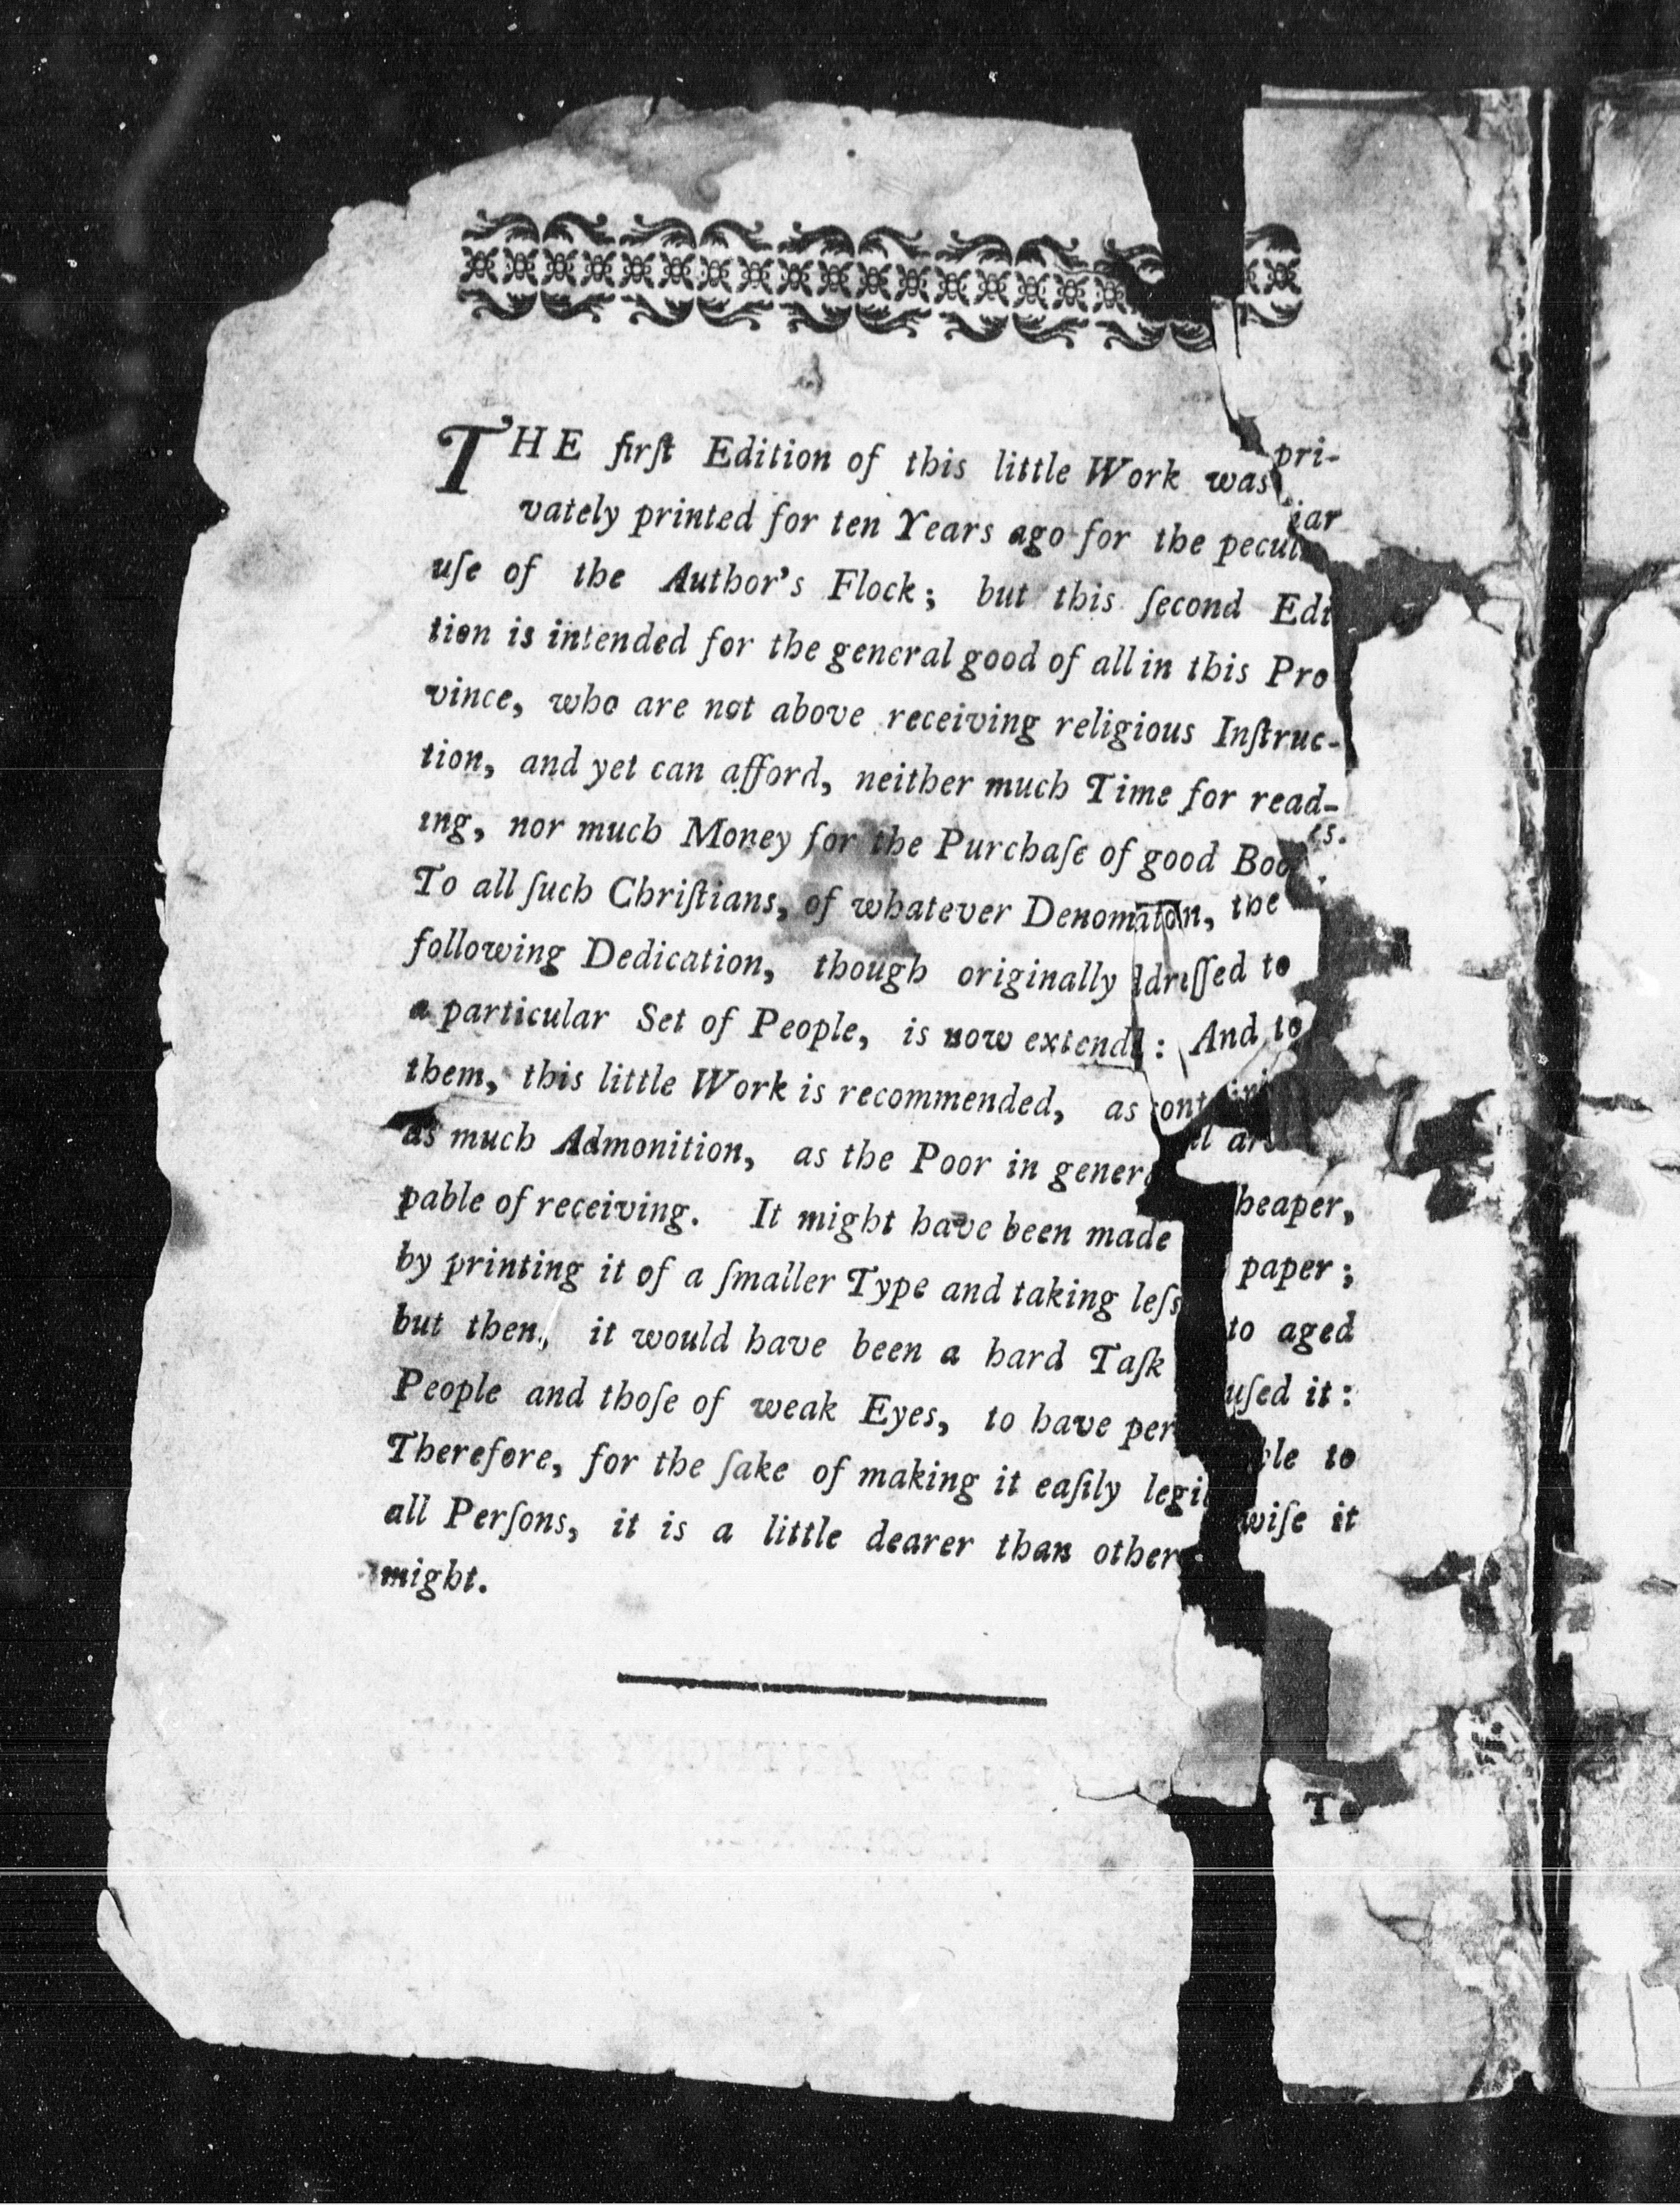 THE firſt Edition of this little Work was pri-
vately printed for ten Years ago for the peculiar
uſe of the Author's Flock; but this ſecond Edi
tion is intended for the general good of all in this Pro
vince, who are not above receiving religious Inſtruc-
tion, and yet can afford, neither much Time for read-
ing, nor much Money for the Purchaſe of good Boo s.
To all ſuch Chriſtians, of whatever Denomaton, the
following Dedication, though originally ddreſſed to
a particular Set of People, is now extend : And to
them, this little Work is recommended, as
as much Admonition, as the Poor in general are
pable of receiving. It might have been made heaper,
by printing it of a ſmaller Type and taking leſs paper;
but then, it would have been a hard Taſk to aged
People and thoſe of weak Eyes, to have peruſed it:
Therefore, for the ſake of making it eaſily legible to
all Perſons, it is a little dearer than otherwiſe it
might.
To